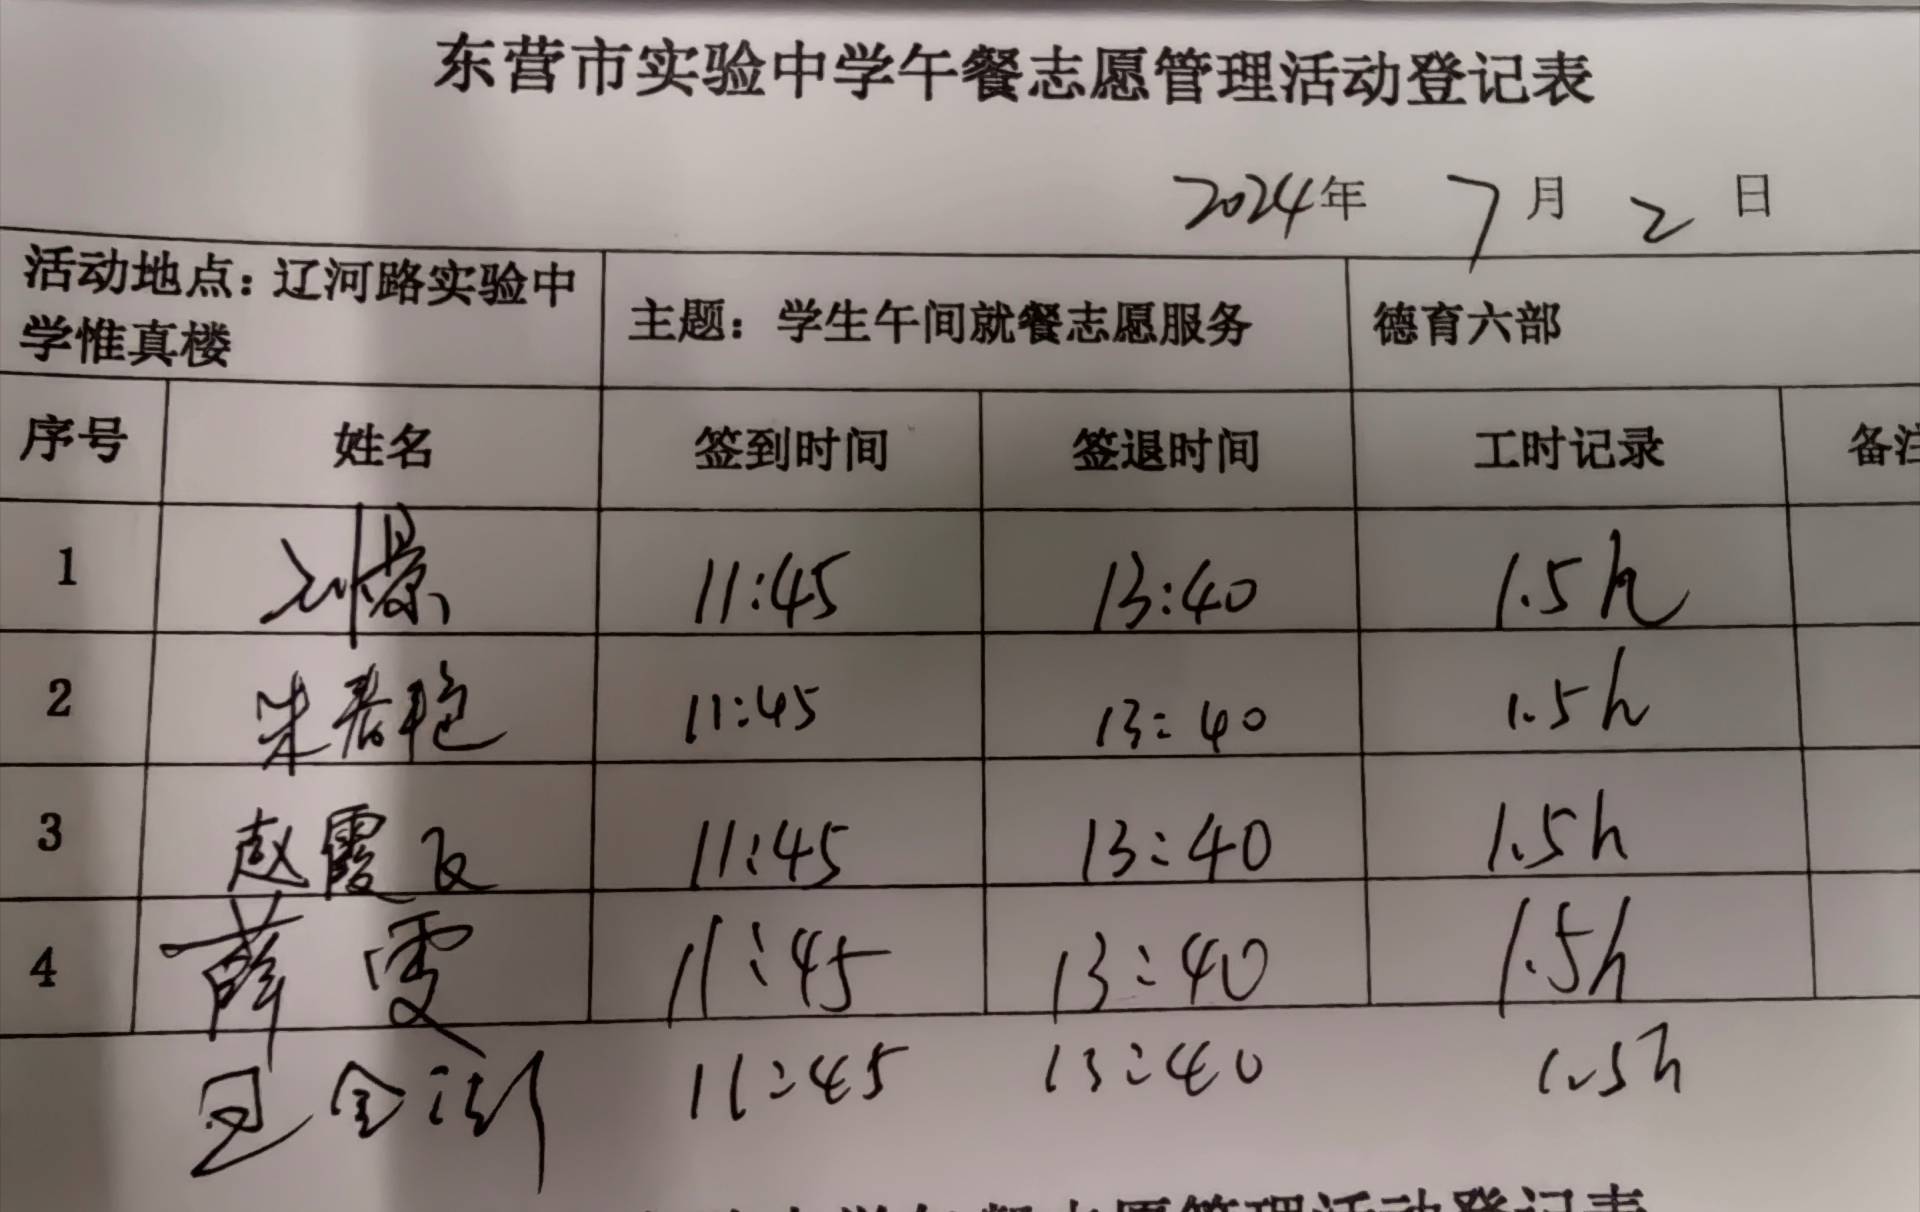 东营市实验中学午餐志愿管理活动登记表
2024年 7月 2日
活动地点：辽河路实验中学惟真楼 主题：学生午间就餐志愿服务 德育六部
序号 姓名 签到时间 签退时间 工时记录 备注
1 刘景 11:45 13:40 1.5h
2 朱春艳 11:45 13:40 1.5h
3 赵霞飞 11:45 13:40 1.5h
4 薛雯 11:45 13:40 1.5h
11:45 13:40 1.5h
中学午餐志愿管理活动登记表